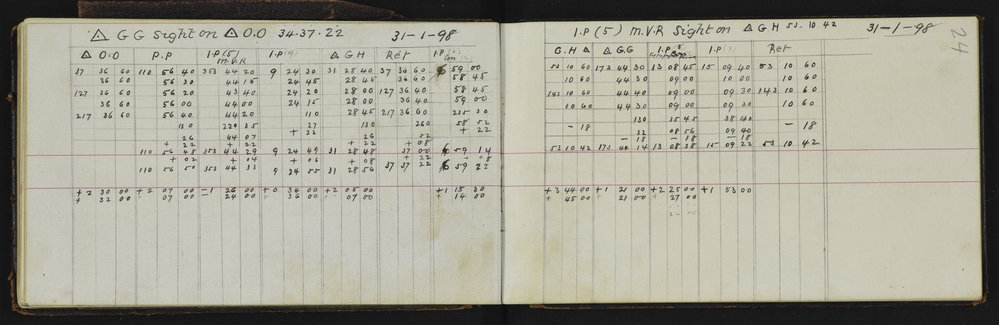 △ G G sight on △ O.O 34.37.22 31-1-98
△ O.O P.P I.P (5) M.V.R I.P (4) △ G H Ref I.P (6)
37 36 60 110 56 40 353 44 20 9 24 30 31 28 40 37 36 60 59 00
36 60 56 30 44 15 24 45 28 45 36 60 58 45
127 36 60 56 20 43 40 24 20 28 00 127 36 40 58 45
36 60 56 00 44 00 24 15 28 00 36 40 59 00
217 36 60 56 40 44 20 110 28 45 217 36 60 235 30
130 220 35 27 130 260 58 52
26 44 07 + 22 26 52 + 22
+ 22 + 22 + 22 + 08
110 56 48 353 44 29 9 24 49 31 28 48 37 00 6 59 14
+ 02 + 04 + 06 + 08 + 22 + 08
110 56 50 353 44 33 9 24 55 31 28 56 37 37 22 6 59 22
+2 30 00 +2 07 00 -1 26 00 +0 34 00 +2 05 00 +1 15 30
+ 32 00 07 00 - 24 00 + 36 00 07 00 + 14 00
I.P (5) M.V.R sight on △ G H 53.10.42 31-1-98
24
G.H △ △ G.G I.P Ref
53 10 60 173 44 30 13 08 45 15 09 40 53 10 60
10 60 44 30 09 00 10 00 10 60
143 10 60 44 40 09 00 09 30 143 10 60
10 60 44 30 09 00 09 30 10 60
130 35 45 38 40
- 18 32 08 56 09 40 - 18
- 18 - 18 - 18
53 10 42 173 44 14 13 08 38 15 09 22 53 10 42
+3 44 00 +1 21 00 +2 25 00 +1 53 00
+ 45 00 + 21 00 + 27 00